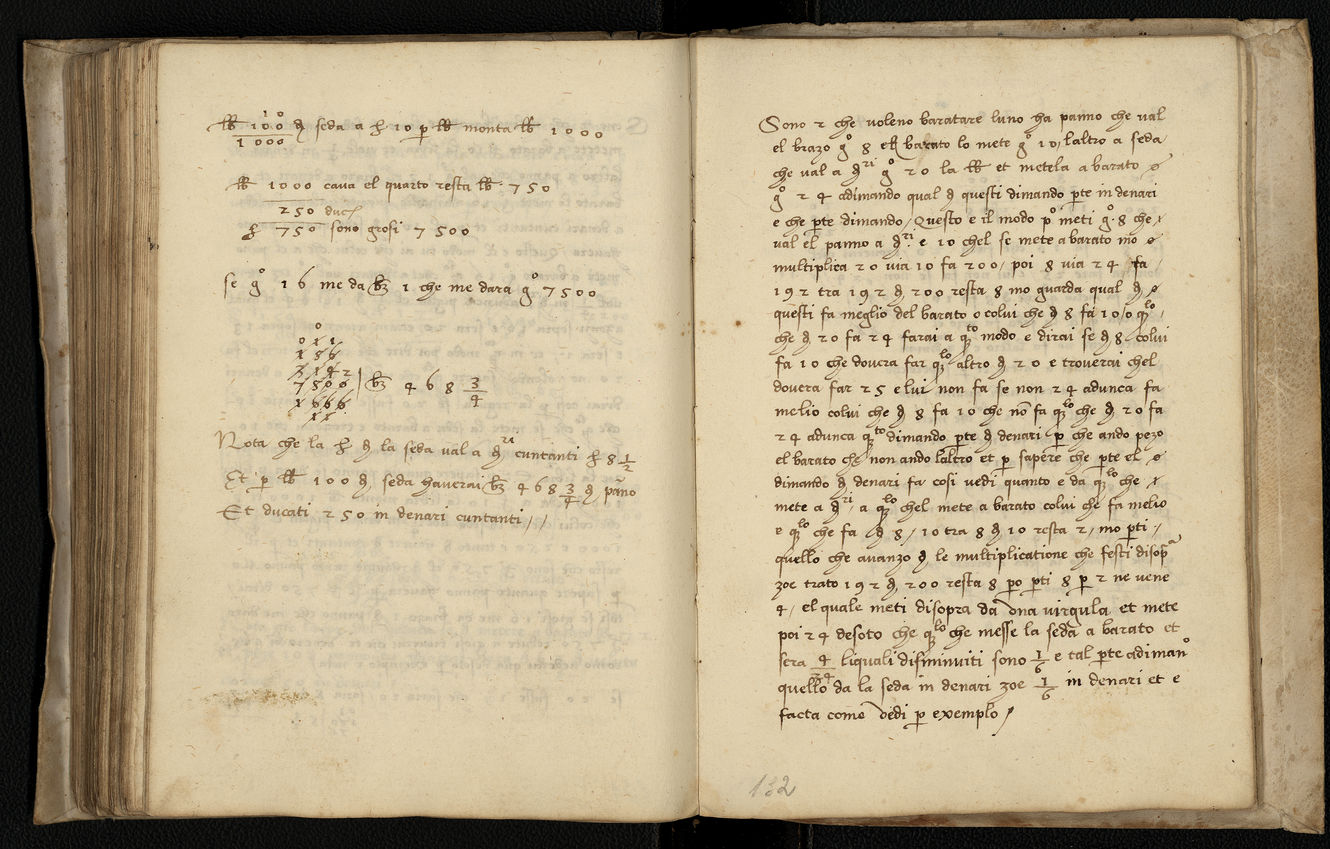 lb 100 d seda a L 10 p lb monta lb 1000
1000
lb 1000 cava el quarto resta lb 750
250 duc
L 750 sono grosi 7500
se gº 16 me da bz 1 che me dara gº 7500
0
011
186
3142
7500 | bz 468 3/4
1666
11
Nota che la L d la seda val a dri cuntanti L 8 1/2
Et p lb 100 d seda haverai bz 468 3/4 d pano
Et ducati 250 in denari cuntanti //
Sono 2 che voleno baratare luno ha panno che val
el brazo gº 8 et barato lo mete gº 10, laltro a seda
che val a dri gº 20 la lb et metela a barato
gº 24 adimando qual d questi dimando pte in denari
e che pte dimando / Questo e il modo pº meti gº 8 che
val el panno a dri e 10 chel se mete a barato mo
multiplica 20 via 10 fa 200, poi 8 via 24 fa
192 tra 192 d 200 resta 8 mo guarda qual d
questi fa meglio del barato o colui che d 8 fa 10, o qlo
che d 20 fa 24 farai a qto modo e dirai se d 8 colui
fa 10 che dovera far qlo altro d 20 e troverai chel
dovera far 25 e lui non fa se non 24 adunca fa
melio colui che d 8 fa 10 che nō fa qlo che d 20 fa
24 adunca qto dimando pte d denari p che ando pezo
el barato che non ando laltro et p sapere che pte el
dimando d denari fa cosi vedi quanto e da qlo che
mete a dri, a qlo chel mete a barato colui che fa melio
e qlo che fa d 8, 10 tra 8 d 10 resta 2, mo pti,
quello che avanzo d le multiplicatione che festi disopa
zoe trato 192 d 200 resta 8 po pti 8 p 2 ne vene
4, el quale meti disopra da una virgula et mete
poi 24 desoto che qlo che messe la seda a barato et
sera 4/24 liquali disminuiti sono 1/6 e tal pte adimanº
quello da la seda in denari zoe 1/6 in denari et e
facta come vedi p exemplo /
132